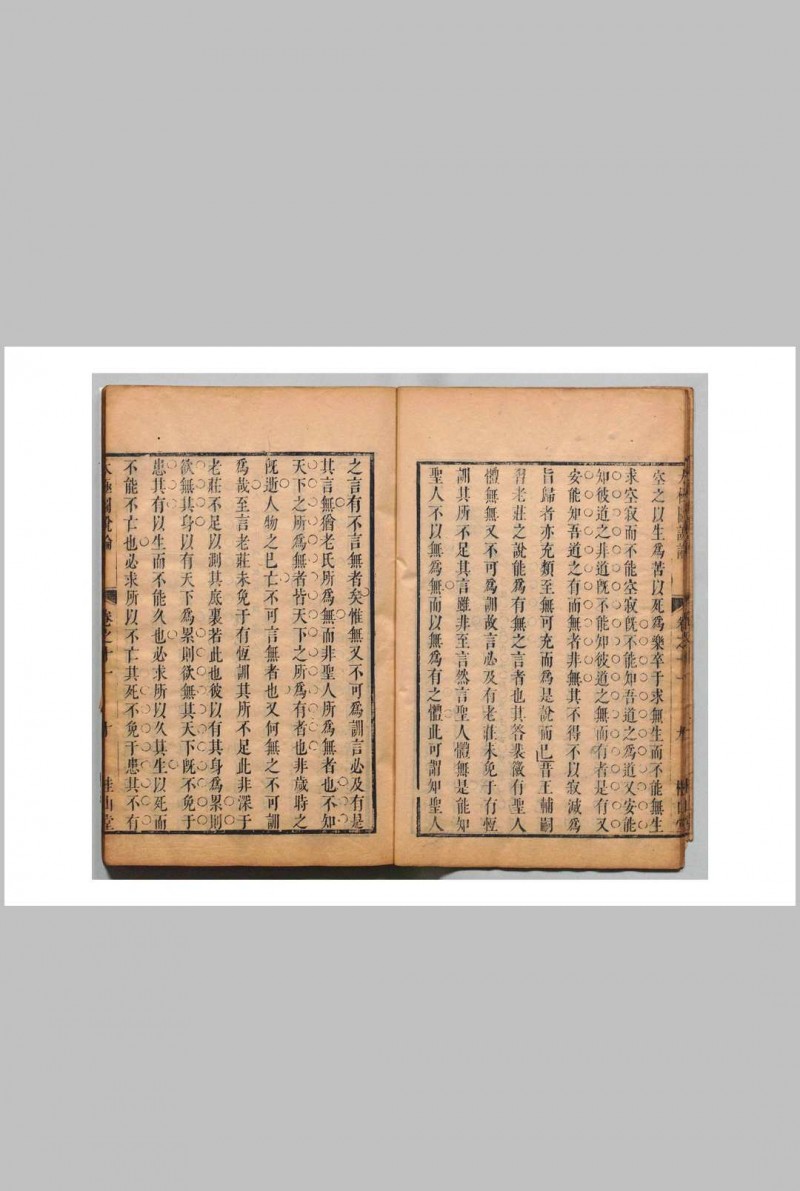 太極圖說論
卷之十一
九
空之以生為苦以死為樂卒于求無生而不能無生
求空寂而不能空寂旣不能知吾道之為道又安能
知彼道之非道旣不能知彼道之無而有者是有又
安能知吾道之有而無者非無其不得不以寂滅為
旨歸者亦充類至無可充而為是說而已昔王輔嗣
習老莊之說能為有無之言者也其答裴徽有聖人
體無無又不可為訓故言必及有老莊未免于有恆
訓其所不足其言雖非至言然言聖人體無是能知
聖人不以無為無而以無為有之體此可謂知聖人
之言有不言無者矣惟無又不可為訓言必及有是
其言無猶老氏所為無而非聖人所為無者也不知
天下之所為無者皆天下之所為有者也非歲時之
旣逝人物之已亡不可言無者也又何無之不可訓
為哉至言老莊未免于有恆訓其所不足此非深于
老莊不足以測其底裏若此也彼以有其身為累則
欲無其身以有天下為累則欲無其天下旣不免于
患其有以生而不能久也必求所以久其生以死而
不能不亡也必求所以不亡其死不免于患其不有
太極圖說論
卷之十一
十